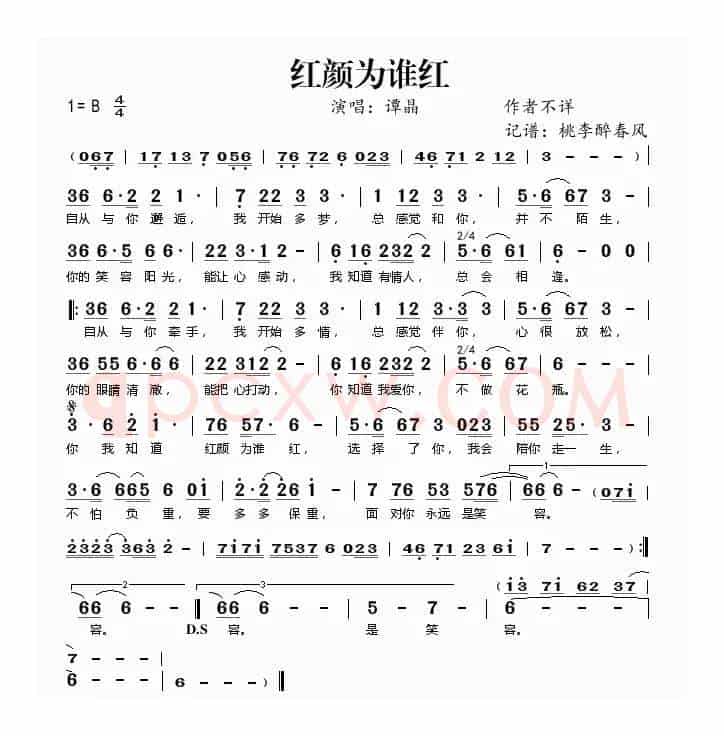 红颜为谁红
1= B 4/4 演唱：谭晶 作者不详
记谱：桃李醉春风
( 067 | 17 13 7 056 | 76 72 6 023 | 46 71 2 12 | 3 - - - )
36 6·2 2 1· | 7 22 3 3 | 1 12 3·3 | 5·6 67 3 - |
自从 与你 邂逅， 我 开始 多 梦， 总 感觉 和你， 并不 陌 生，
36 6·5 66 | 22 3·1 2 - | 6 16 232 2 | 2/4 5·6 61 | 6 - 0 0
你的 笑容 阳光， 能让 心 感动， 我 知道 有情人， 总会 相 逢。
|: 36 6·2 21· | 7 22 3 3 | 1 12 3·3 3 | 5·6 67 3 - |
自从 与你 牵手， 我 开始 多 情， 总 感觉 伴你， 心很 放松，
36 55 6·66 | 22 312 2 - | 6 16 232 2 | 2/4 5·6 67 | 6 - - -
你的 眼睛 清澈， 能把 心打动， 你 知道 我爱你， 不做 花 瓶。
3· 6 2 1 | 76 57· 6 - | 5·6 67 3 023 | 55 25· 3 - |
你 我 知 道 红颜 为谁 红， 选择 了 你， 我会 陪你 走一 生，
3·6 665 6 01 | 2·2 261 6 - | 7 76 53 576 | 1 66 6 - (071
不怕 负 重， 要 多多 保重， 面 对你 永远 是笑 容。
2323 363 2 - | 7171 7537 6 023 | 46 71 23 61 | 7 - - - :|
2 3 (13 71 62 37
66 6 - - | 66 6 - - | 5 - 7 - | 6 - - -
容。 D.S 容。 是 笑 容。
7 - - - |
6 - - - | 6 - - - ) ||
qpcxw.COM